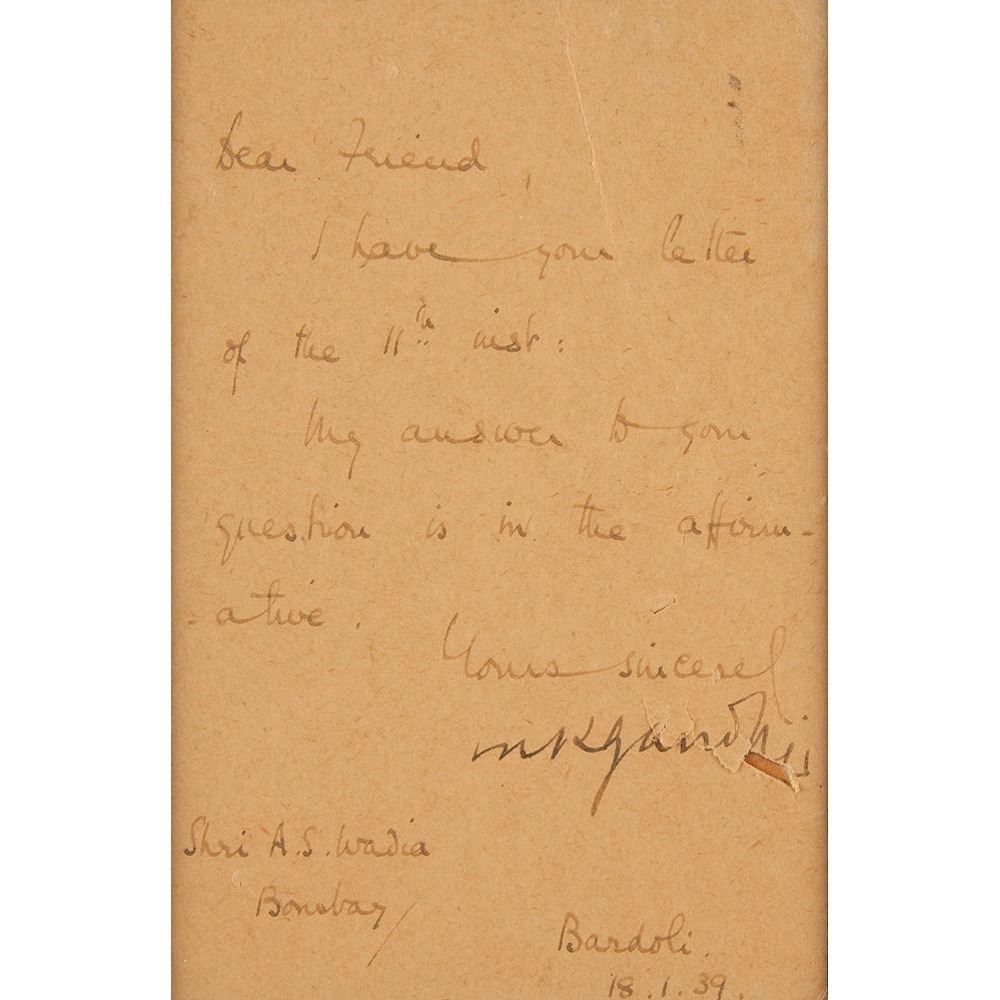 Dear Friend,
I have your letter
of the 11th inst:
My answer to your
question is in the affirm-
-ative.
Yours sincerely
MKGandhi
Shri A.S. Wadia
Bombay/
Bardoli.
18.1.39.